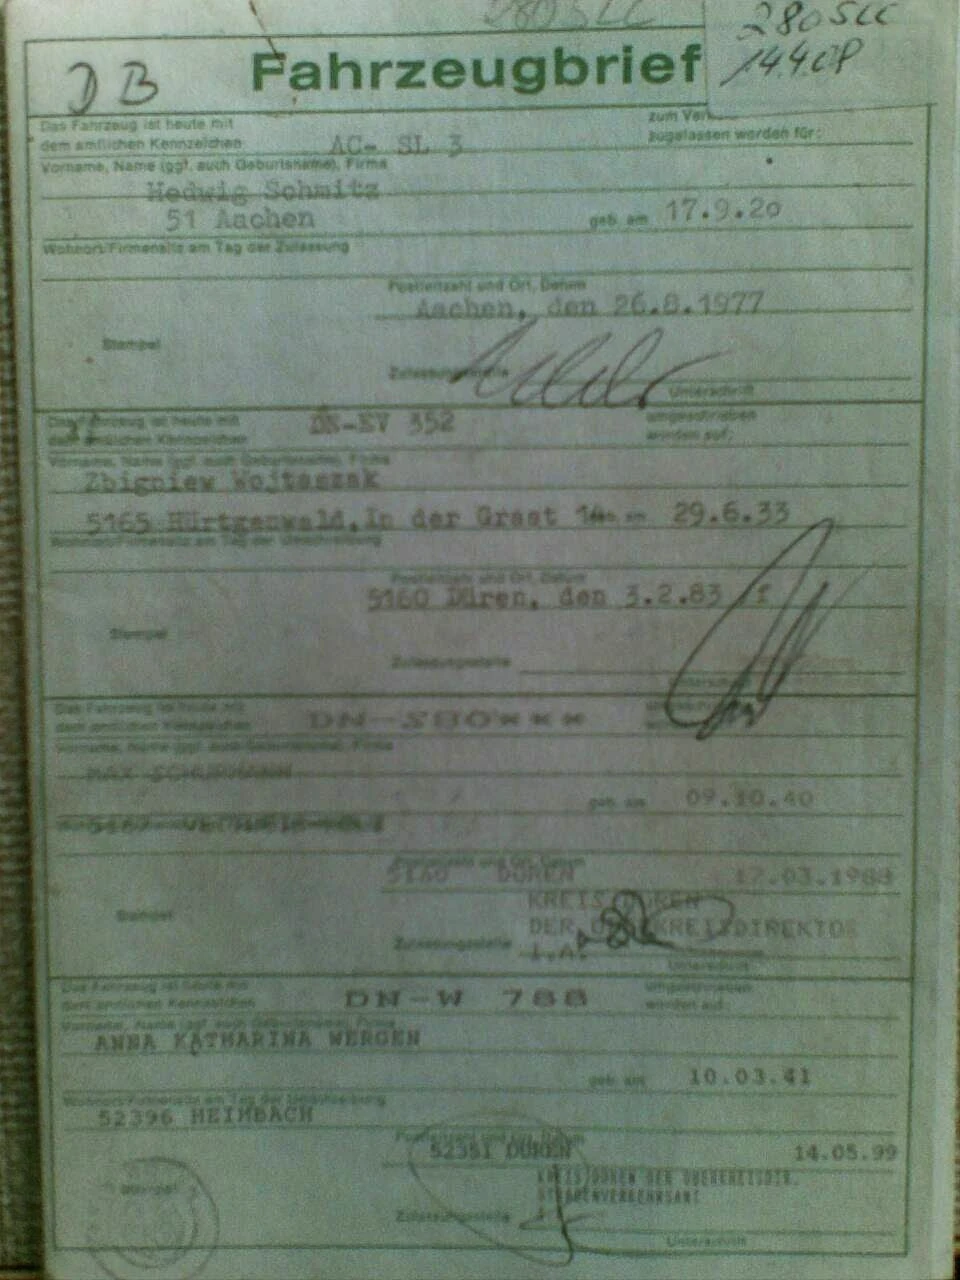 280 SLC
280 SLC
14.4.08
DB
Fahrzeugbrief
Das Fahrzeug ist heute mit
zum
dem amtlichen Kennzeichen AC- SL 3 zugelassen worden für:
Vorname, Name (ggf. auch Geburtsname), Firma
Hedwig Schmitz
51 Aachen geb. am 17.9.20
Wohnort/Firmensitz am Tag der Zulassung
Postleitzahl und Ort, Datum
Aachen, den 26.8.1977
Stempel
Zulassungsstelle
Unterschrift
Das Fahrzeug ist heute mit umgeschrieben
dem amtlichen Kennzeichen DN-EV 352 worden auf:
Vorname, Name (ggf. auch Geburtsname), Firma
Zbigniew Wojtaszak
5165 Hürtgenwald, In der Greet am 29.6.33
Wohnort/Firmensitz am Tag der Umschreibung
Postleitzahl und Ort, Datum
5160 Düren, den 3.2.83 /f
Stempel
Zulassungsstelle
Das Fahrzeug ist heute mit
dem amtlichen Kennzeichen DN-S80***
Vorname, Name (ggf. auch Geburtsname), Firma
MAX
geb. am 09.10.40
Postleitzahl und Ort, Datum
5160 DÜREN 17.03.1988
KREIS DÜREN
Stempel
DER OBERKREISDIREKTOR
Zulassungsstelle I.A.
Unterschrift
Das Fahrzeug ist heute mit umgeschrieben
dem amtlichen Kennzeichen DN-W 788 worden auf:
Vorname, Name (ggf. auch Geburtsname), Firma
ANNA KATHARINA WERGEN
geb. am 10.03.41
Wohnort/Firmensitz am Tag der Umschreibung
52396 HEIMBACH
Postleitzahl und Ort, Datum
52351 DÜREN 14.05.99
KREIS DÜREN DER OBERKREISDIR.
Stempel
STRASSENVERKEHRSAMT
Zulassungsstelle
Unterschrift